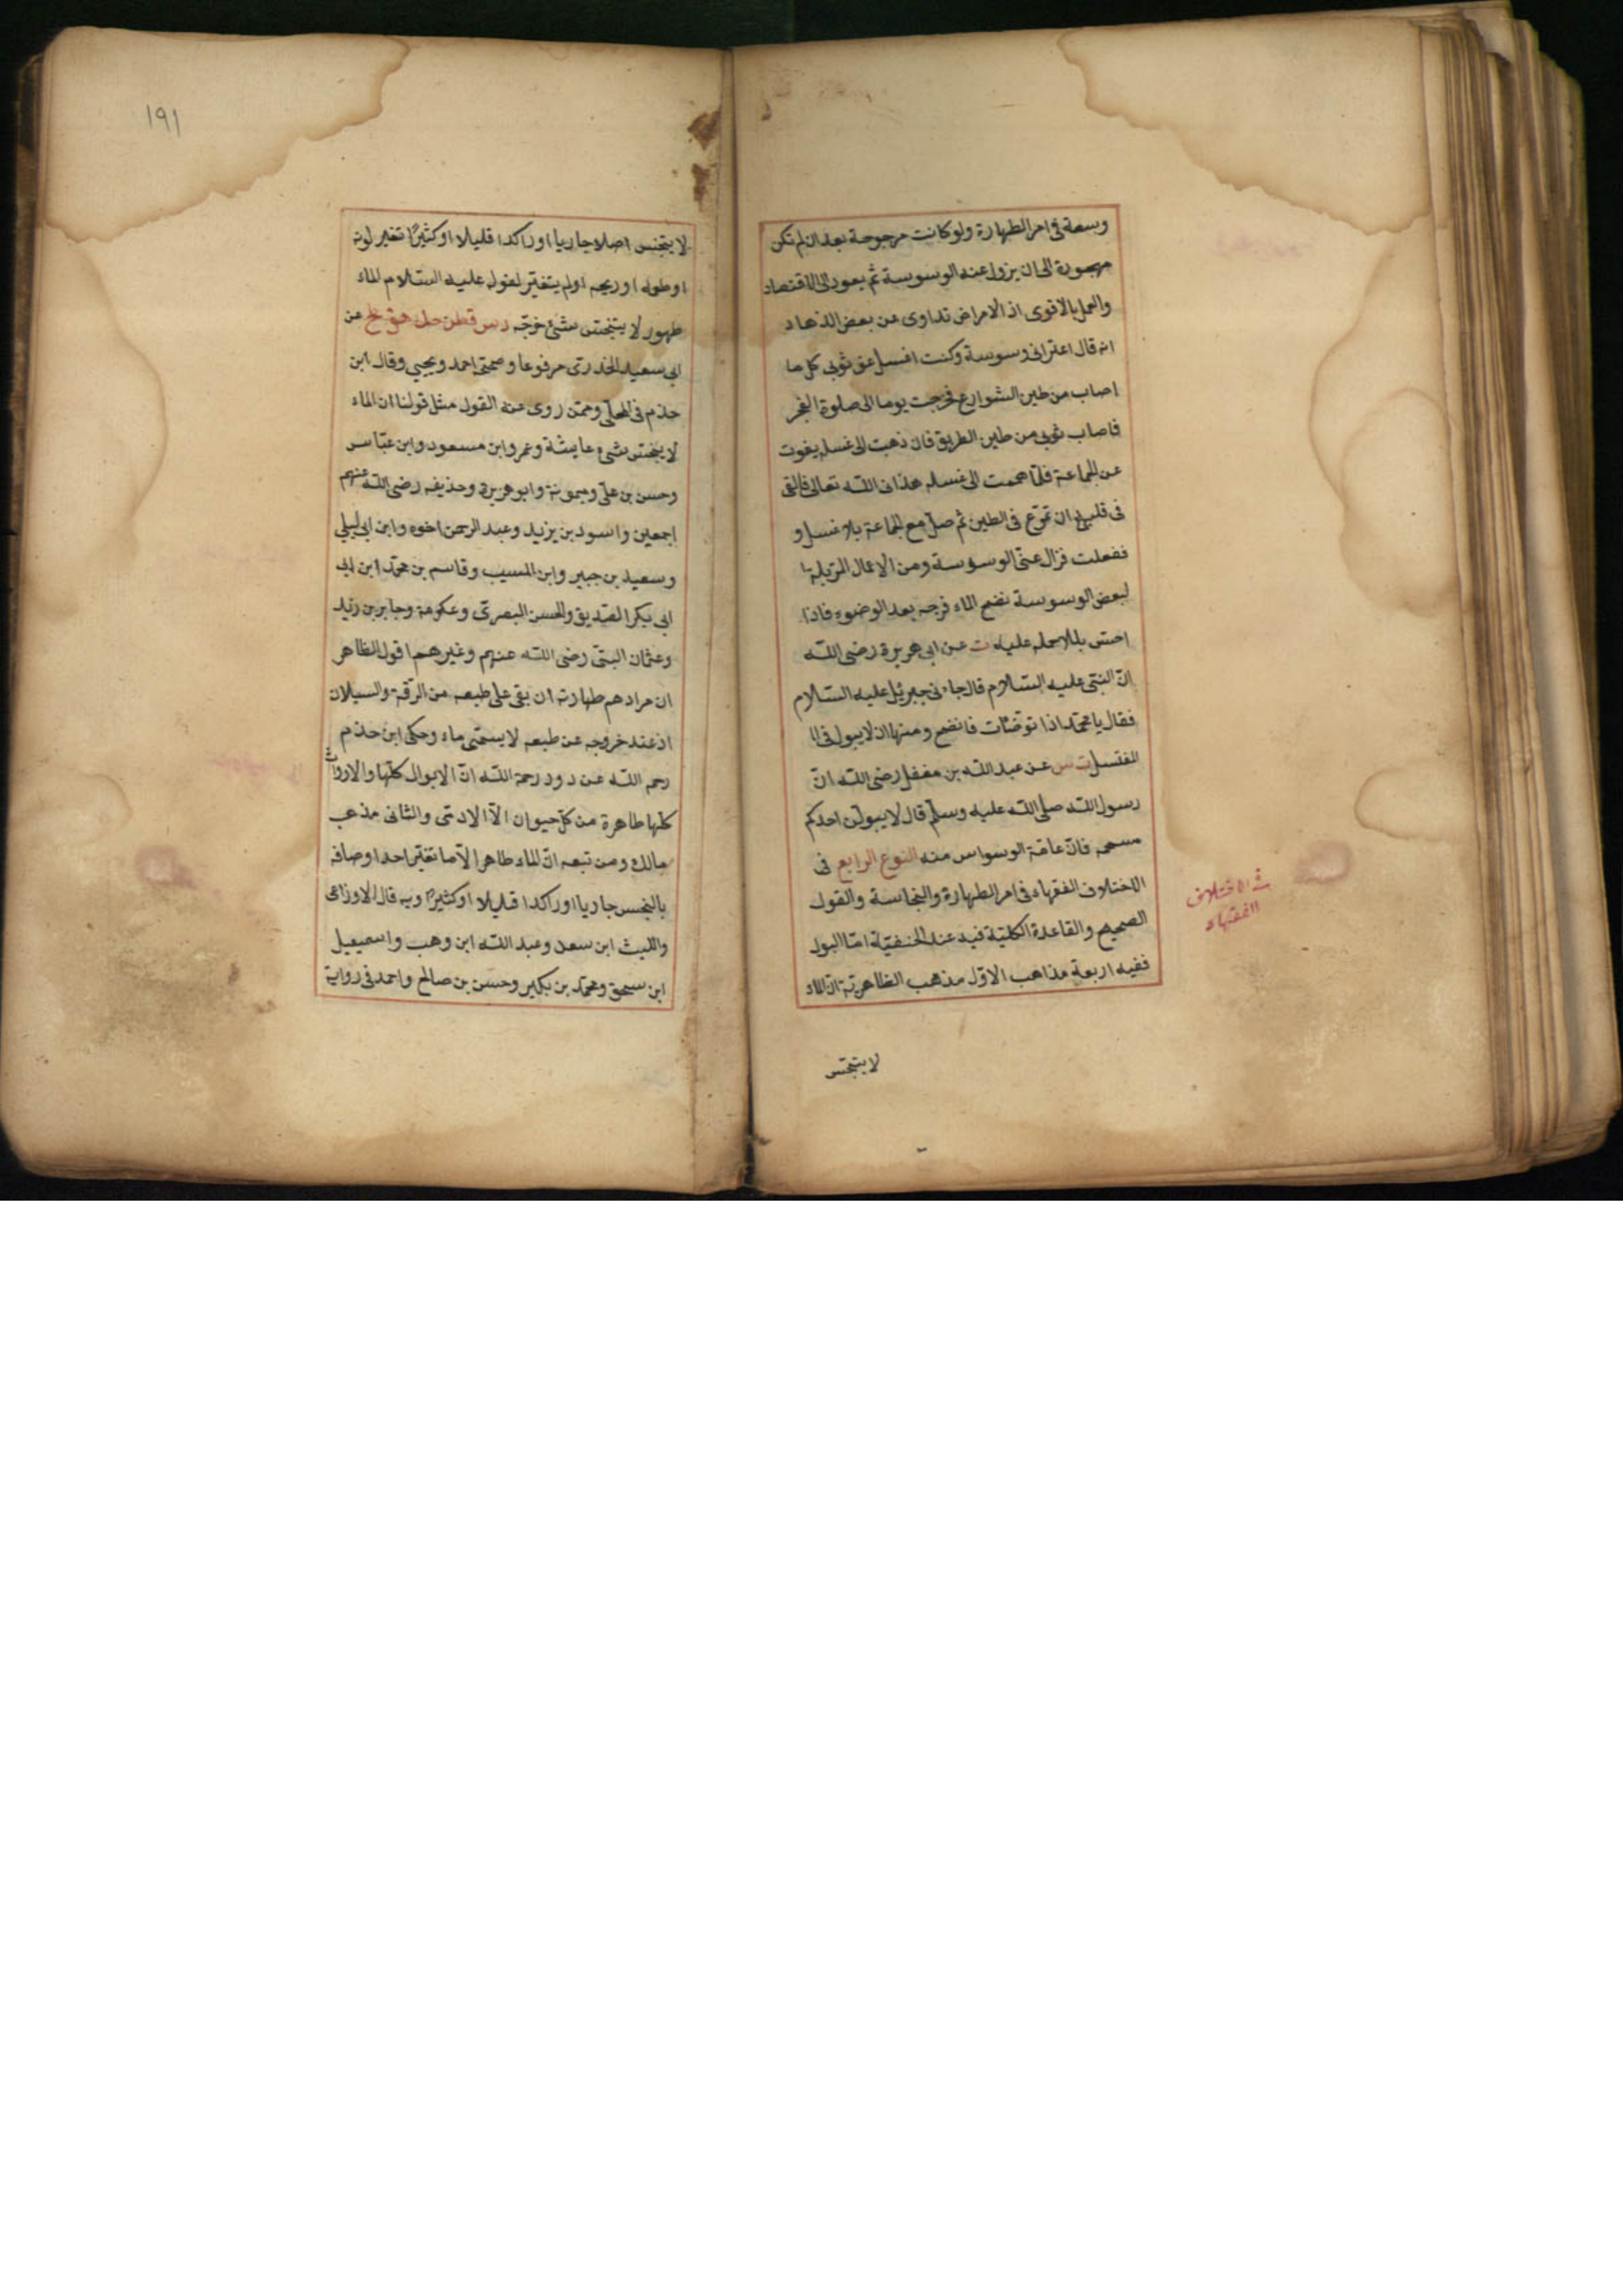 وسعة فى امر الطهارة ولو كانت مرجوحة بعد ان لم تكن
مهجورة الى ان يزول عنه الوسوسة ثم يعود الى الاقتصاد
والعمل بالاقوى اذ الامراض تداوى عن بعض الذهاد
انه قال اعترانى وسوسة وكنت اغسل عن ثوبى كل ما
اصاب من طين الشوارع فخرجت يوما الى صلوة الفجر
فاصاب ثوبى من طين الطريق فان ذهبت الى غسله يفوت
عن الجماعة فلما هممت الى غسله هدانى الله تعالى فالقى
فى قلبى ان تمرّغ فى الطين ثم صلّ مع الجماعة بلا غسل و
ففعلت فزال عنى الوسوسة ومن الاعمال المزيلة
لبعض الوسوسة نضح الماء فرجه بعد الوضوء فاذا
احسّ بللا حمله عليه ت عن ابى هريرة رضى الله
انّ النبىّ عليه السّلام قال جاءنى جبرئل عليه السّلام
فقال يا محمّد اذا توضّأت فانضح ومنها ان لا يبول فى ال
المغتسل ت س عن عبد الله بن مغفل رضى الله انّ
رسول الله صلى الله عليه وسلّم قال لا يبولنّ احدكم
مسحمه فانّ عامّة الوسواس منه النوع الرابع فى
الاختلاف الفقهاء فى امر الطهارة والنجاسة والقول
الصحيح والقاعدة الكليّة فيه عند الحنفيّة امّا البول
ففيه اربعة مذاهب الاوّل مذهب الظاهريّة انّ الماء
لا يتنجّس
فى الاختلاف
الفقهاء
١٩١
لا يتنجس اصلا جاريا او راكدا قليلا او كثيرًا تغير لونه
او طعمه او ريحه او لم يتغيّر لقوله عليه السّلام الماء
طهور لا يتنجّس شئ خرّجه د س قطن حك هق طح عن
ابى سعيد الخدرىّ مرفوعا وصححه احمد ويحيى وقال ابن
حذم فى المحلّى وممّن روى عنه القول مثل قولنا ان الماء
لا ينجّس شئ عايشة وعمر وابن مسعود وابن عبّاس
وحسن بن علىّ وميمونة وابو هريرة وحذيفه رضى الله عنهم
اجمعين واسود بن يزيد وعبد الرحمن اخوه وابن ابى ليلى
وسعيد بن جبير وابن المسيب وقاسم بن محمّد ابن ابى
ابى بكر الصّديق والحسن البصرىّ وعكرمة وجابر بن زيد
وعثمان البتىّ رضى الله عنهم وغيرهم اقول الظاهر
ان مرادهم طهارته ان بقى على طبعه من الرقّة والسيلان
اذ عند خروجه عن طبعه لا يسمّى ماء وحكى ابن حذم
رحمه الله عن دود رحمة الله انّ الابوال كلّها والارواث
كلّها طاهرة من كلّ حيوان الاّ الادمىّ والثانى مذهب
مالك ومن تبعه انّ الماء طاهر الاّ ما تغيّر احد اوصافه
بالنجس جاريا او راكدا قليلا او كثيرًا وبه قال الاوزاعى
والليث ابن سعد وعبد الله ابن وهب واسمعيل
ابن سحق ومحمّد بن بكير وحسن بن صالح واحمد فى رواية